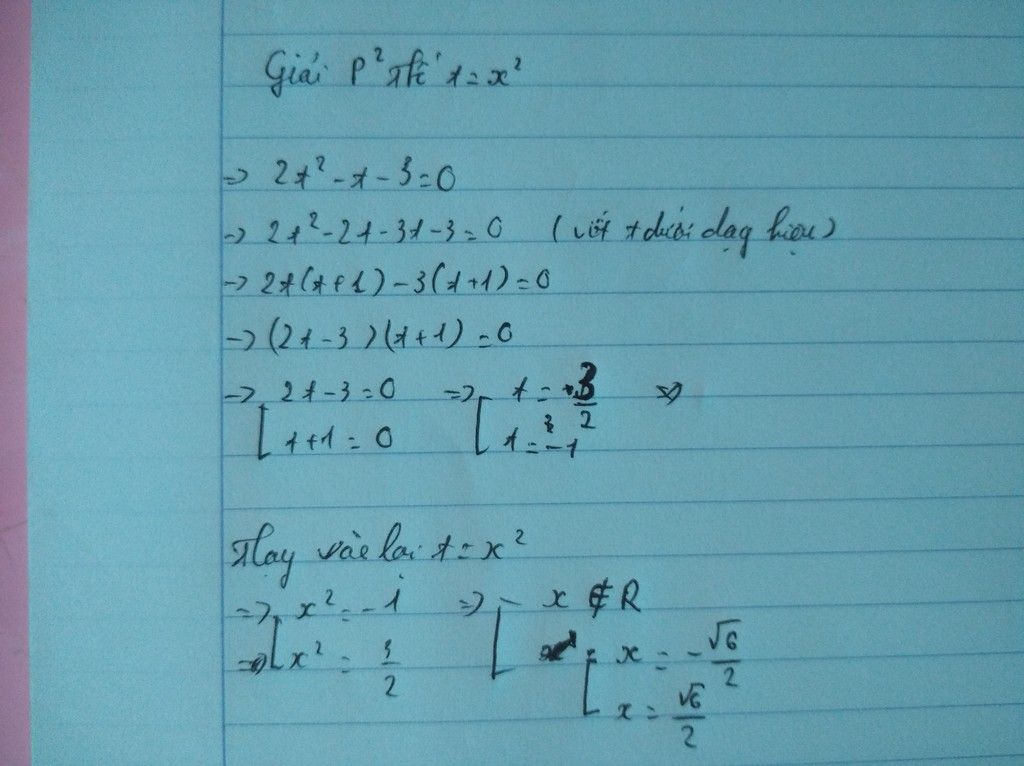 Giải P² thế t = x²
=> 2t² - t - 3 = 0
-> 2t² - 2t - 3t - 3 = 0 (viết t dưới dạg hiệu)
-> 2t(t+1) - 3(t+1) = 0
-> (2t - 3)(t+1) = 0
-> [ 2t - 3 = 0 => [ t = 3/2 =>
t+1 = 0 t = -1
Thay vào lại t = x²
=> [ x² = -1 => [ x ∉ R
=> x² = 3/2 [ x = -√6/2
x = √6/2